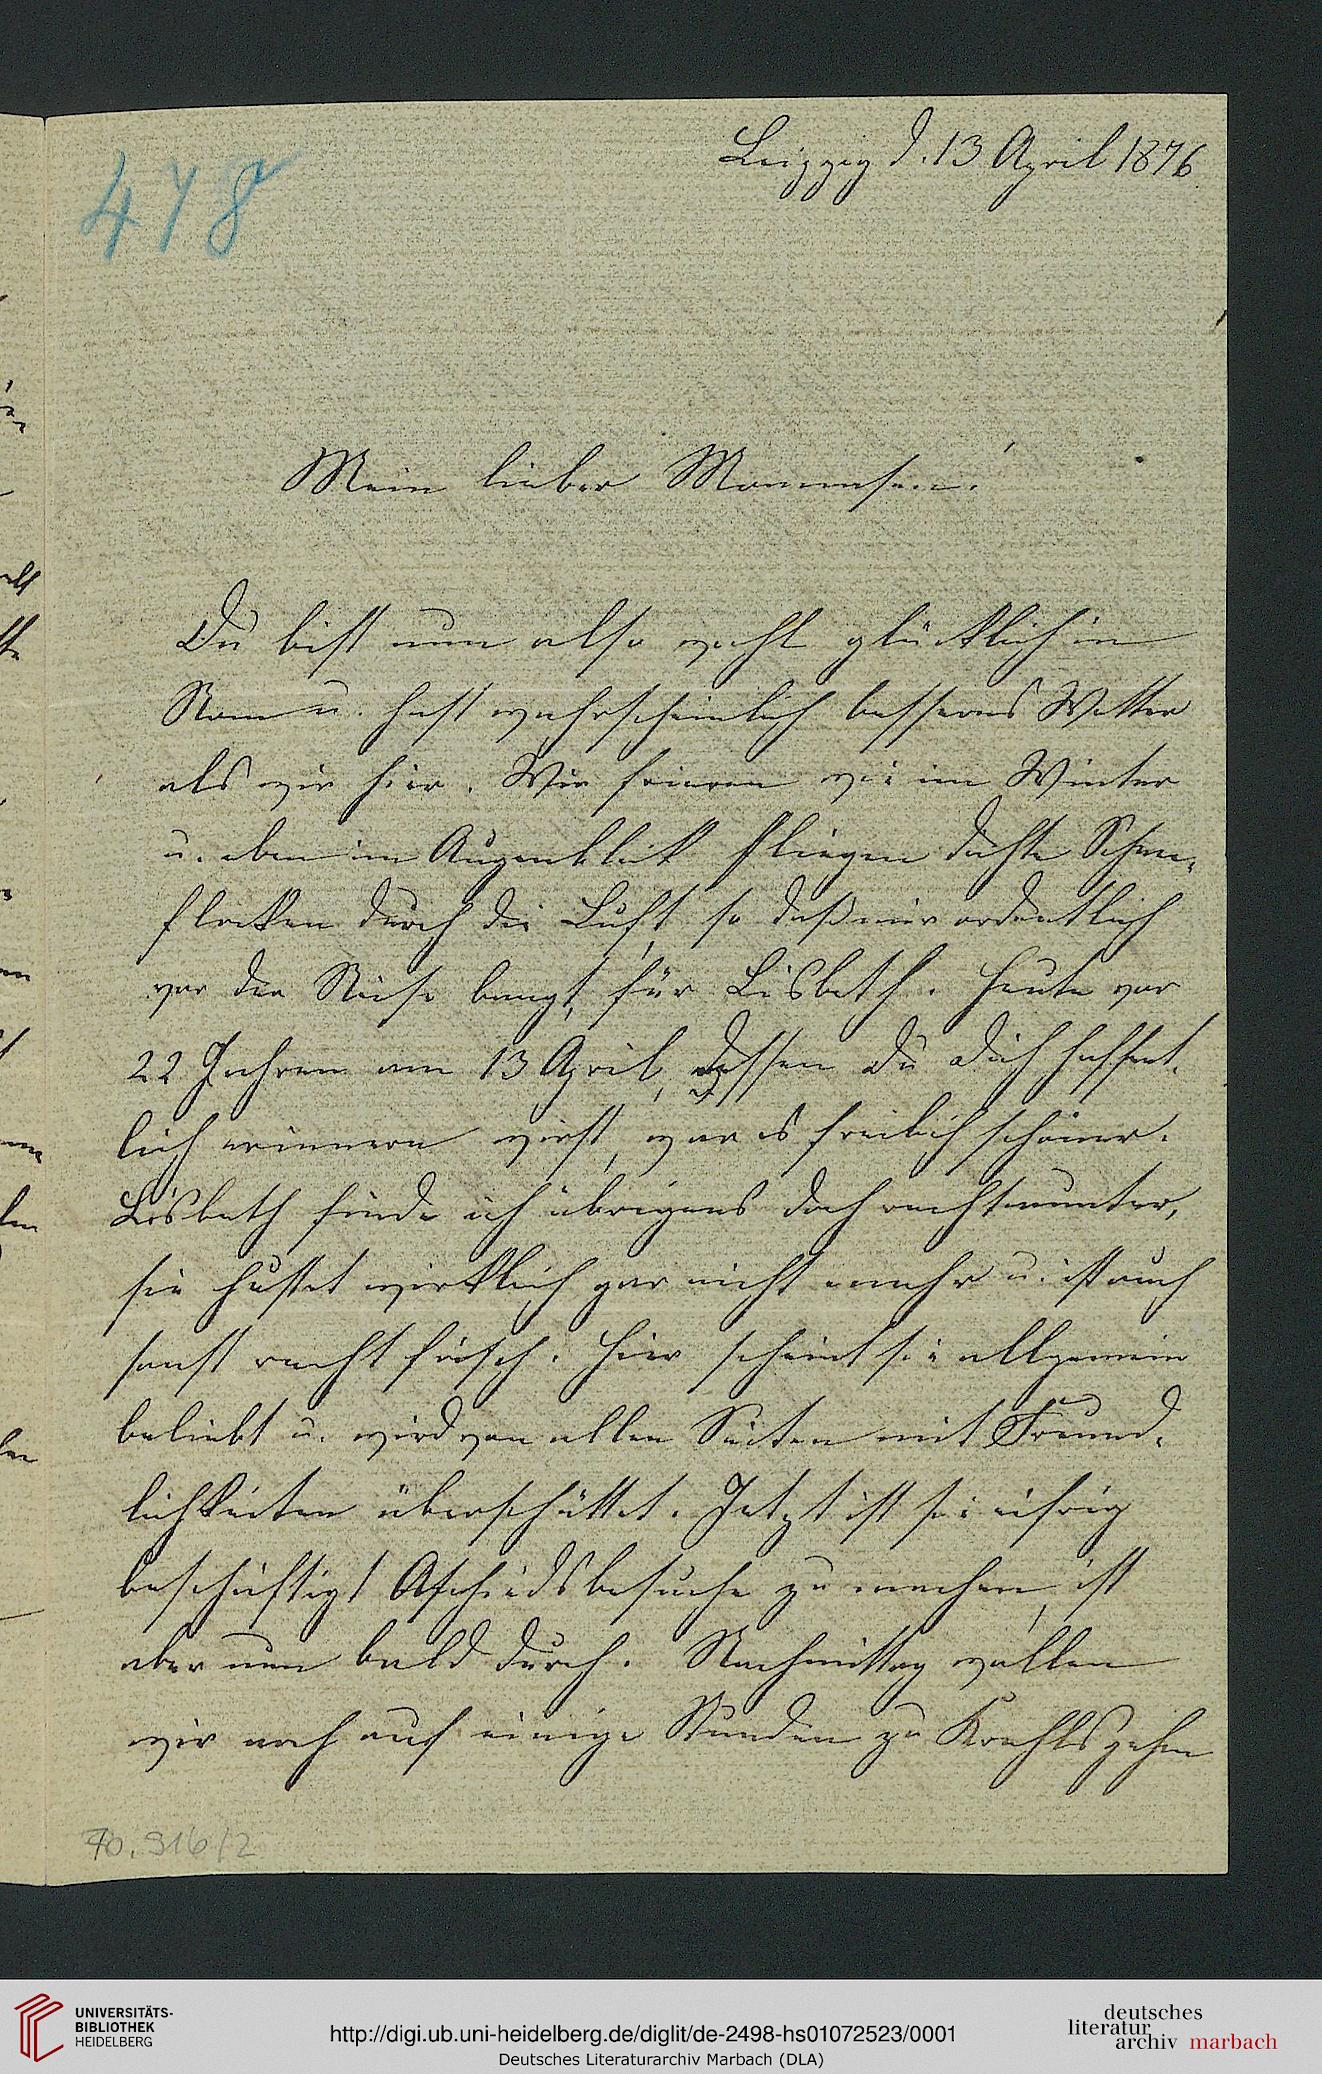 Leipzig d. 13 April 1876
478
Mein lieber Mommsen!
Du bist nun also wohl glücklich in
Rom u. hast wahrscheinlich besseres Wetter
als wir hier. Wir frieren wie im Winter
u. eben im Augenblick fliegen dichte Schnee-
flocken durch die Luft, so daß mir ordentlich
vor der Reise bangt, für Lisbeth. Heute vor
22 Jahren am 13 April, dessen Du Dich hoffent-
lich erinnern wirst, war es freilich schöner.
Lisbeth finde ich übrigens doch recht munter,
sie hustet wirklich gar nicht mehr u. ist auch
sonst recht frisch. Hier scheint sie allgemein
beliebt u. wird von allen Seiten mit Freund-
lichkeiten überschüttet. Jetzt ist sie eifrig
beschäftigt Abschiedsbesuche zu machen, ist
aber nun bald durch. Nachmittag wollen
wir noch auf einige Stunden zu Krehls gehen
70.916/2
UNIVERSITÄTS-
BIBLIOTHEK
HEIDELBERG
http://digi.ub.uni-heidelberg.de/diglit/de-2498-hs01072523/0001
Deutsches Literaturarchiv Marbach (DLA)
deutsches
literatur
archiv marbach